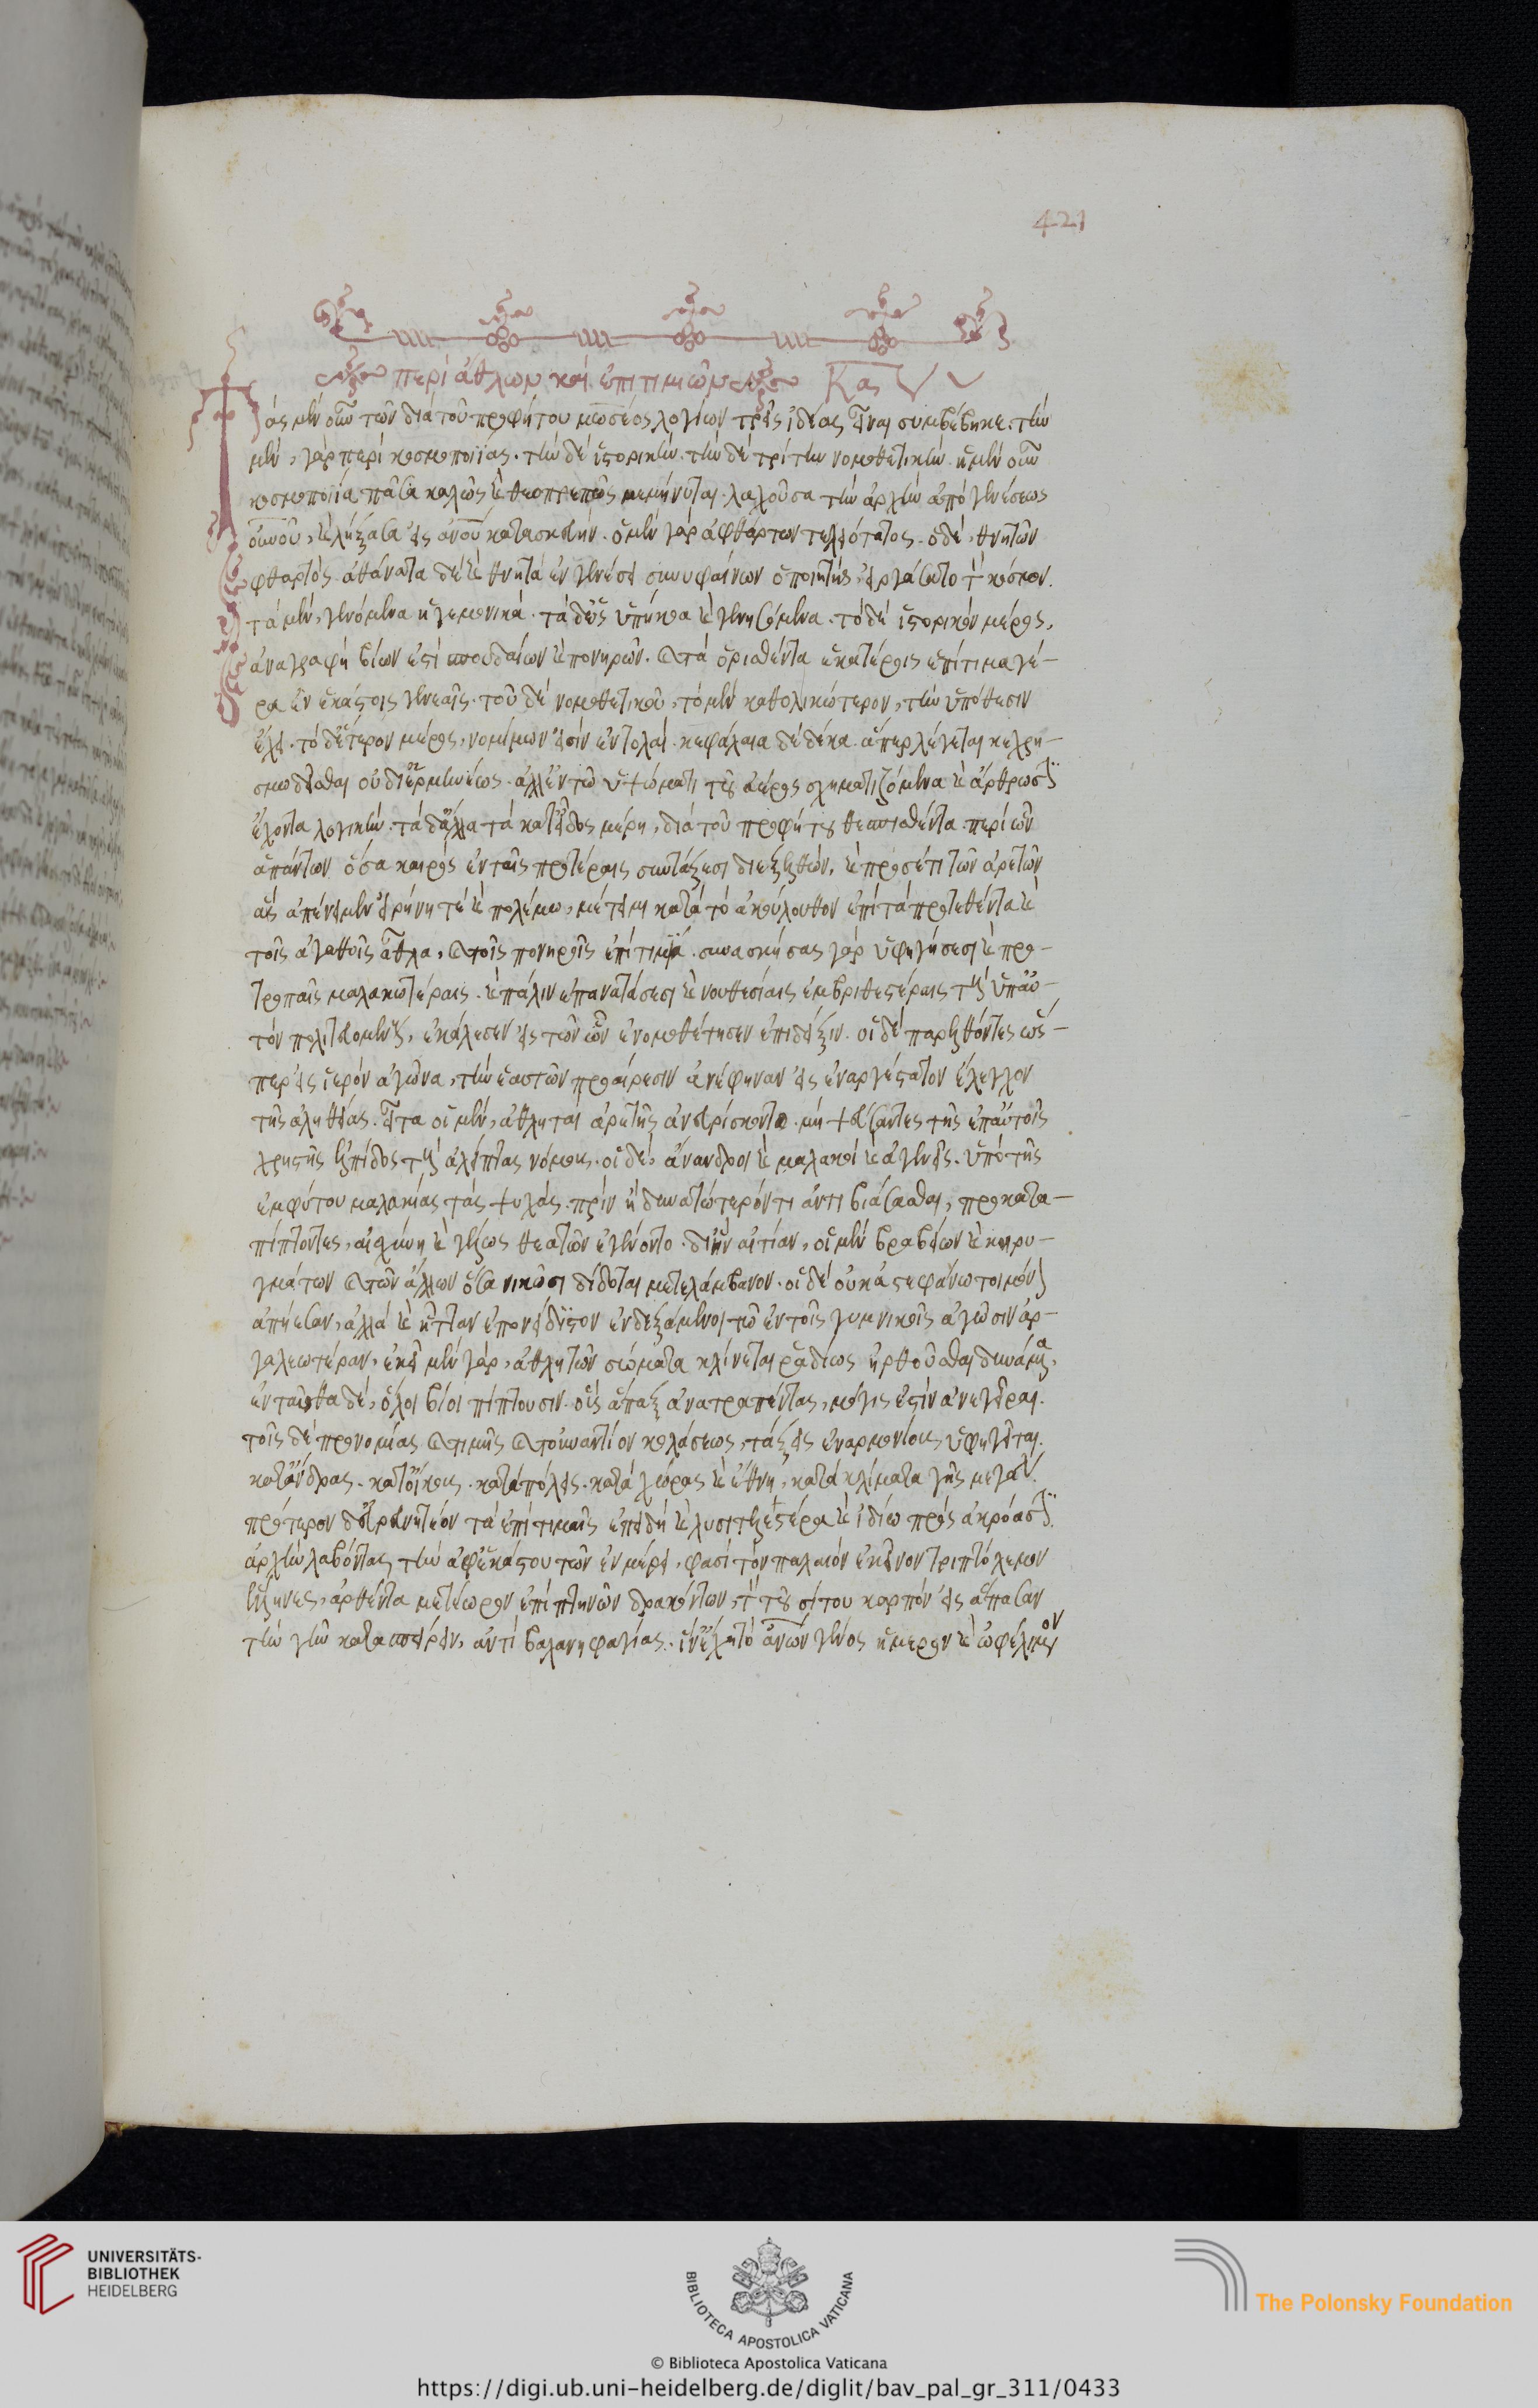 421
περὶ ἄθλων καὶ ἐπιτιμιῶν
Τὰς μὲν οὖν τῶν διὰ τοῦ προφήτου μωσέος λογίων τρεῖς ἰδέας εἶναι συμβέβηκε. τὴν
μὲν, γὰρ περὶ κοσμοποιΐας. τὴν δὲ ἱστορικήν. τὴν δὲ τρίτην νομοθετικήν. ἡ μὲν οὖν
κοσμοποιία πᾶσα καλῶς καὶ θεοπρεπῶς μεμήνυται. λαχοῦσα τὴν ἀρχὴν ἀπὸ γενέσεως
οὐνοῦ, καὶ λήξασα εἰς ἀνοῦ κατασκευήν. ὁ μὲν γὰρ ἀφθάρτων τελειότατος. ὁ δὲ, θνητῶν
φθαρτός. ἀθάνατα δὲ καὶ θνητὰ ἐν γενέσει συνυφαίνων ὁ ποιητὴς, εἰργάσατο τὸν κόσμον.
τὰ μὲν, γενόμενα ἡγεμονικά. τὰ δὲ ὡς ὑπήκοα καὶ γενησόμενα. τὸ δὲ ἱστορικὸν μέρος,
ἀναγραφὴ βίων ἐστὶ σπουδαίων καὶ πονηρῶν. καὶ τὰ ὁρισθέντα ἑκατέροις ἐπίτιμα γέ-
ρα ἐν ἑκάστοις γενεαῖς. τοῦ δὲ νομοθετικοῦ, τὸ μὲν καθολικώτερον, τὴν ὑπόθεσιν
ἔχει. τὸ δ' ἕτερον μέρος, νομίμων εἰσὶν ἐντολαί. κεφάλαια δὲ δέκα. ἅπερ λέγεται κεχρη-
σμωδεῖσθαι οὐ δι' ἑρμηνέως. ἀλλ' ἐν τῷ ὑψώματι τοῦ ἀέρος σχηματιζόμενα καὶ ἄρθρωσιν
ἔχοντα λογικήν. τὰ δ' ἄλλα τὰ κατ' εἶδος μέρη, διὰ τοῦ προφήτου θεσπισθέντα. περὶ ὧν
ἁπάντων ὅσα καιρὸς ἐν ταῖς προτέραις συντάξεσι διεξελθών, καὶ προσέτι τῶν ἀρετῶν
ἃς ἀπένειμεν εἰρήνῃ τὲ καὶ πολέμῳ, μέτειμι κατὰ τὸ ἀκόλουθον ἐπὶ τὰ προτεθέντα καὶ
τοῖς ἀγαθοῖς ἆθλα, καὶ τοῖς πονηροῖς ἐπιτίμια. συνασκήσας γὰρ ὑφηγήσεσι καὶ προ-
τροπαῖς μαλακωτέραις. καὶ πάλιν ἐπανατάσεσι καὶ νουθεσίαις ἐμβριθεστέραις τοὺς ὑπ' αὐ-
τὸν πολιτευομένους, ἐκάλεσεν εἰς τῶν ὧν ἐνομοθέτησεν ἐπίδειξιν. οἱ δὲ παρελθόντες ὥς-
περ εἰς ἱερὸν ἀγῶνα, τὴν ἑαυτῶν προαίρεσιν ἀνέφηναν εἰς ἐναργέστατον ἔλεγχον
τῆς ἀληθείας. εἶτα οἱ μὲν, ἀθληταὶ ἀρετῆς ἀνευρίσκοντο. μὴ ψεύσαντες τῆς ἐπ' αὐτοῖς
χρηστῆς ἐλπίδος τοὺς ἀλείπτας νόμους. οἱ δὲ, ἄνανδροι καὶ μαλακοὶ καὶ ἀγενεῖς. ὑπὸ τῆς
ἐμφύτου μαλακίας τὰς ψυχάς. πρὶν ἢ δυνατώτερόν τι ἀντιβιάσασθαι, προκατα-
πίπτοντες, αἰσχύνη καὶ γέλως θεατῶν ἐγένοντο. δι' ἣν αἰτίαν, οἱ μὲν βραβείων καὶ κηρυ-
γμάτων καὶ τῶν ἄλλων ὅσα νικῶσι δίδοται μετελάμβανον. οἱ δὲ οὐκ ἀστεφάνωτοι μόνον
ἀπῄεσαν, ἀλλὰ καὶ ἧτταν ἐπονείδιστον ἐνδεξάμενοι τῶ ἐν τοῖς γυμνικοῖς ἀγῶσιν ἀρ-
γαλεωτέραν, ἐκεῖ μὲν γὰρ, ἀθλητῶν σώματα κλίνεται ῥαδίως ἠρθοῦσθαι δυνάμενα,
ἐνταῦθα δὲ, ὅλοι βίοι πίπτουσιν. οἷς ἅπαξ ἀνατραπέντας, μόγις ἐστὶν ἀνεγεῖραι.
τοῖς δὲ προνομίας καὶ τιμῆς καὶ τοὐναντίον κολάσεως, τάξεις ἐναρμονίους, ὑφηγεῖται.
κατ' ἄνδρας. κατ' οἴκους. κατὰ πόλεις. κατὰ χώρας καὶ ἔθνη, κατὰ κλίματα γῆς μεγάλα.
πρότερον δ' ἐρευνητέον τὰ ἐπὶ τιμαῖς ἐπειδὴ καὶ λυσιτελέστερα καὶ ἡδίω πρὸς ἀκρόασιν.
ἀρχὴν λαβόντας τὴν ἀφ' ἑκάστου τῶν ἐν μέρει, φασὶ τὸν παλαιὸν ἐκεῖνον τριπτόλεμον
ἕλληνες, ἀρθέντα μετέωρον ἐπὶ πτηνῶν δρακόντων, τὸν τοῦ σίτου καρπὸν εἰς ἅπασαν
τὴν γῆν κατασπείρειν, ἀντὶ βαλανηφαγίας. ἵν' ἔχῃ τὸ ἀνων γένος ἥμερον καὶ ὠφέλιμον
UNIVERSITÄTS-
BIBLIOTHEK
HEIDELBERG
BIBLIOTECA APOSTOLICA VATICANA
The Polonsky Foundation
© Biblioteca Apostolica Vaticana
https://digi.ub.uni-heidelberg.de/diglit/bav_pal_gr_311/0433